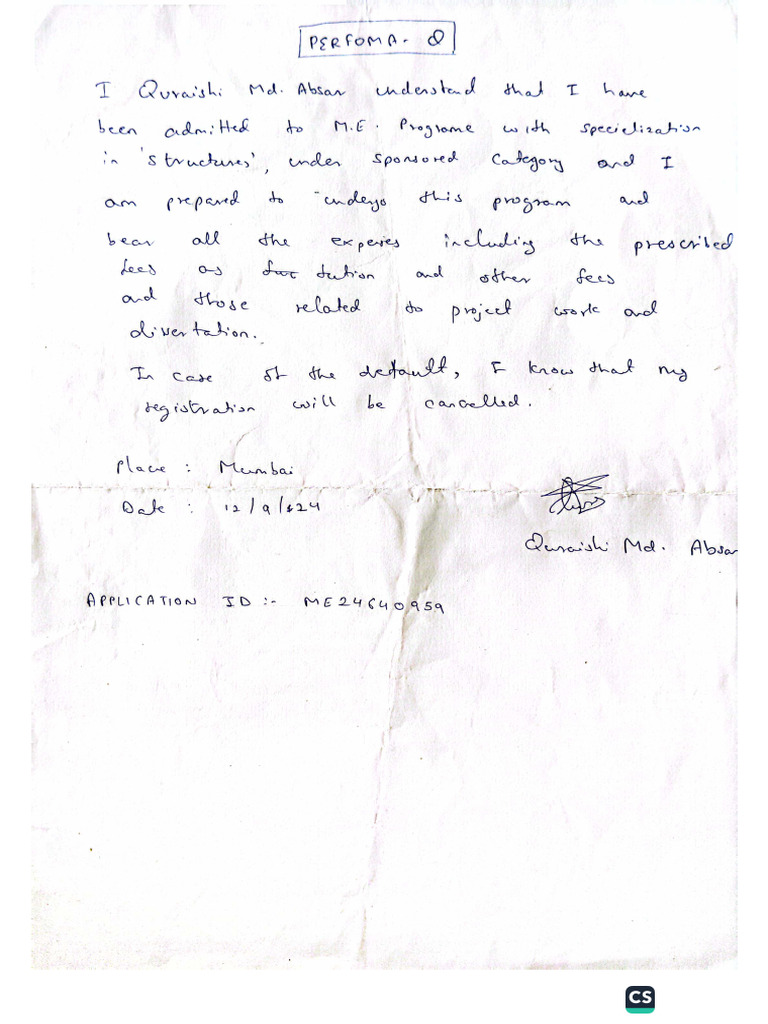 PERFOMA - Q
I Quraishi Md. Absar understand that I have
been admitted to M.E. Programe with specielization
in 'structures', under sponsored category and I
am prepared to undergo this program and
bear all the experies including the prescribed
fees as tution and other fees
and those related to project work and
dissertation.
In case of the default, I know that my
registration will be cancelled.
Place : Mumbai
Date : 12/9/24
Quraishi Md. Absar
APPLICATION ID :- ME24640959
CS